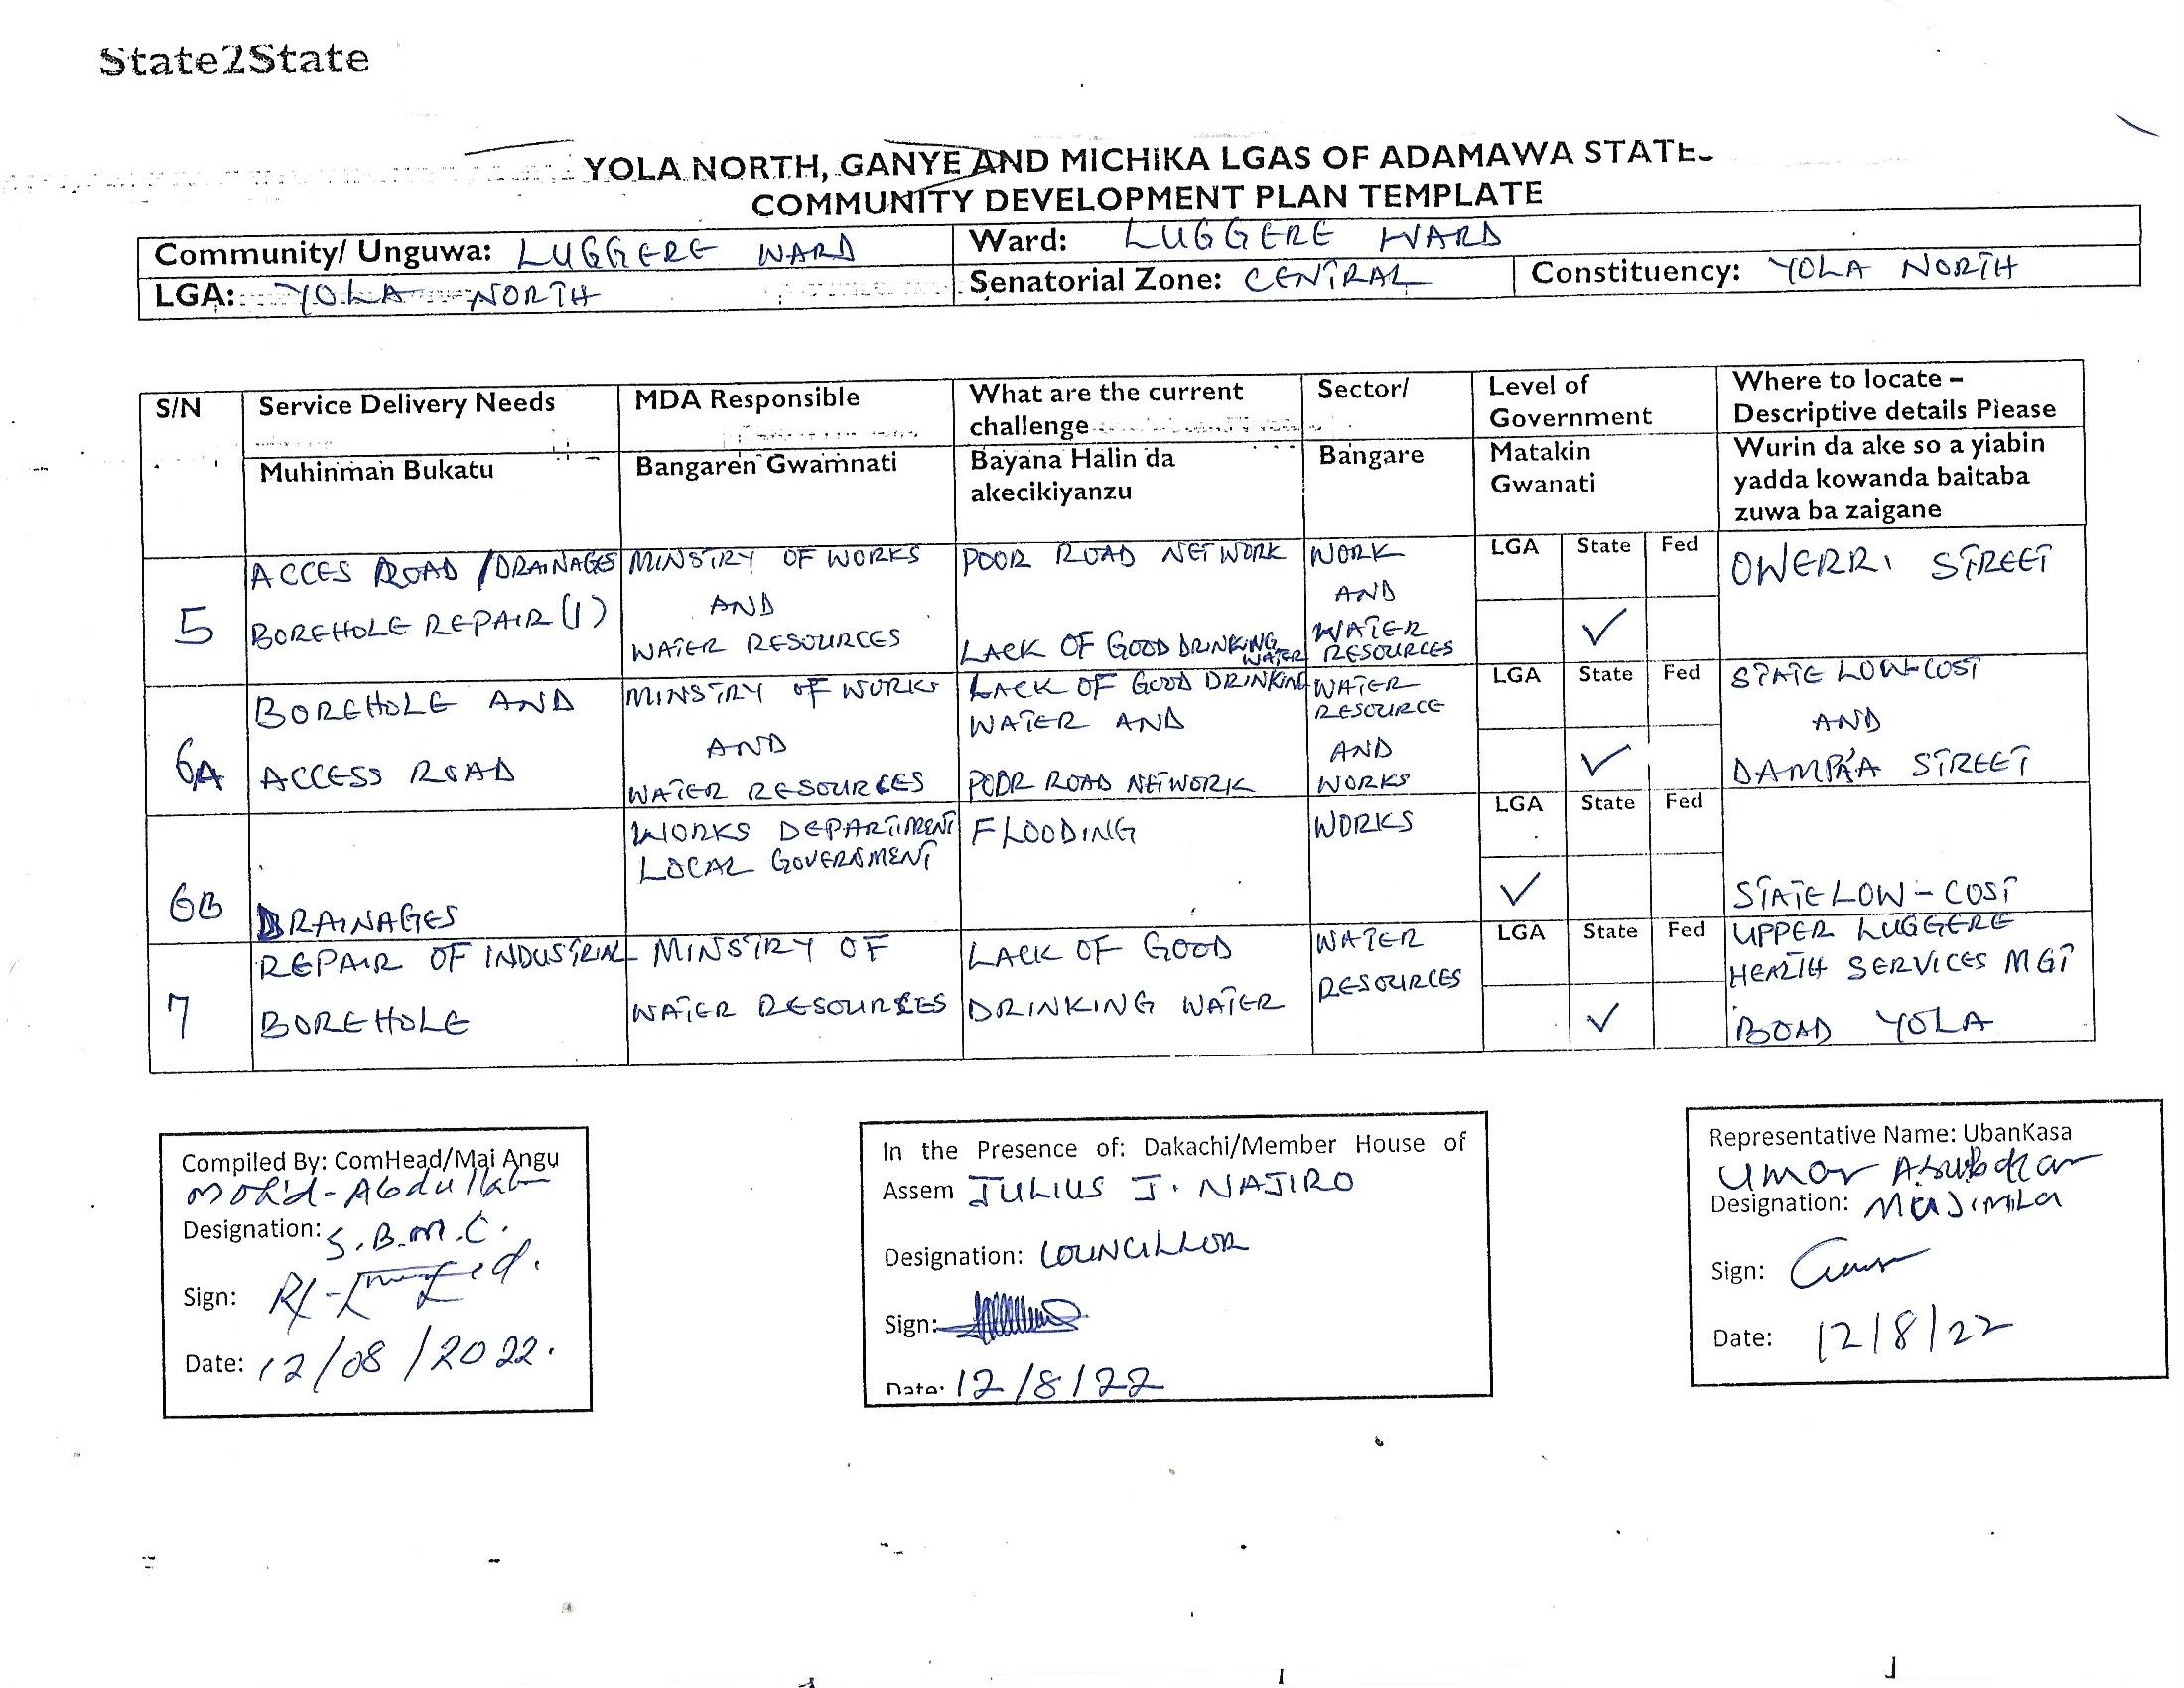 State2State
YOLA NORTH, GANYE AND MICHIKA LGAS OF ADAMAWA STATE
COMMUNITY DEVELOPMENT PLAN TEMPLATE
Community/ Unguwa: LUGGERE WARD
Ward: LUGGERE WARD
LGA: YOLA NORTH
Senatorial Zone: CENTRAL
Constituency: YOLA NORTH
S/N
Service Delivery Needs
MDA Responsible
What are the current
challenge
Sector/
Level of
Government
Where to locate –
Descriptive details Please
Muhinman Bukatu
Bangaren Gwamnati
Bayana Halin da
akecikiyanzu
Bangare
Matakin
Gwanati
Wurin da ake so a yiabin
yadda kowanda baitaba
zuwa ba zaigane
5
ACCES ROAD /DRAINAGES
BOREHOLE REPAIR (1)
MINSTRY OF WORKS
AND
WATER RESOURCES
POOR ROAD NETWORK
LACK OF GOOD DRINKING
WATER
WORK
AND
WATER
RESOURCES
LGA State Fed
✓
OWERRI STREET
6A
BOREHOLE AND
ACCESS ROAD
MINSTRY OF WORKS
AND
WATER RESOURCES
LACK OF GOOD DRINKING
WATER AND
POOR ROAD NETWORK
WATER
RESOURCE
AND
WORKS
LGA State Fed
✓
STATE LOW-COST
AND
DAMPAA STREET
6B
DRAINAGES
WORKS DEPARTMENT
LOCAL GOVERNMENT
FLOODING
WORKS
LGA State Fed
✓
STATE LOW-COST
7
REPAIR OF INDUSTRIAL
BOREHOLE
MINSTRY OF
WATER RESOURCES
LACK OF GOOD
DRINKING WATER
WATER
RESOURCES
LGA State Fed
✓
UPPER LUGGERE
HEALTH SERVICES MGT
BOAD YOLA
Compiled By: ComHead/Mai Angu
Moh'd-Abdullahi
Designation: S.B.M.C.
Sign:
Date: 12/08/2022.
In the Presence of: Dakachi/Member House of
Assem JULIUS J. NAJIRO
Designation: COUNCILLOR
Sign:
Date: 12/8/22
Representative Name: UbanKasa
Umar Abubakar
Designation: MAJIMILA
Sign:
Date: 12/8/22